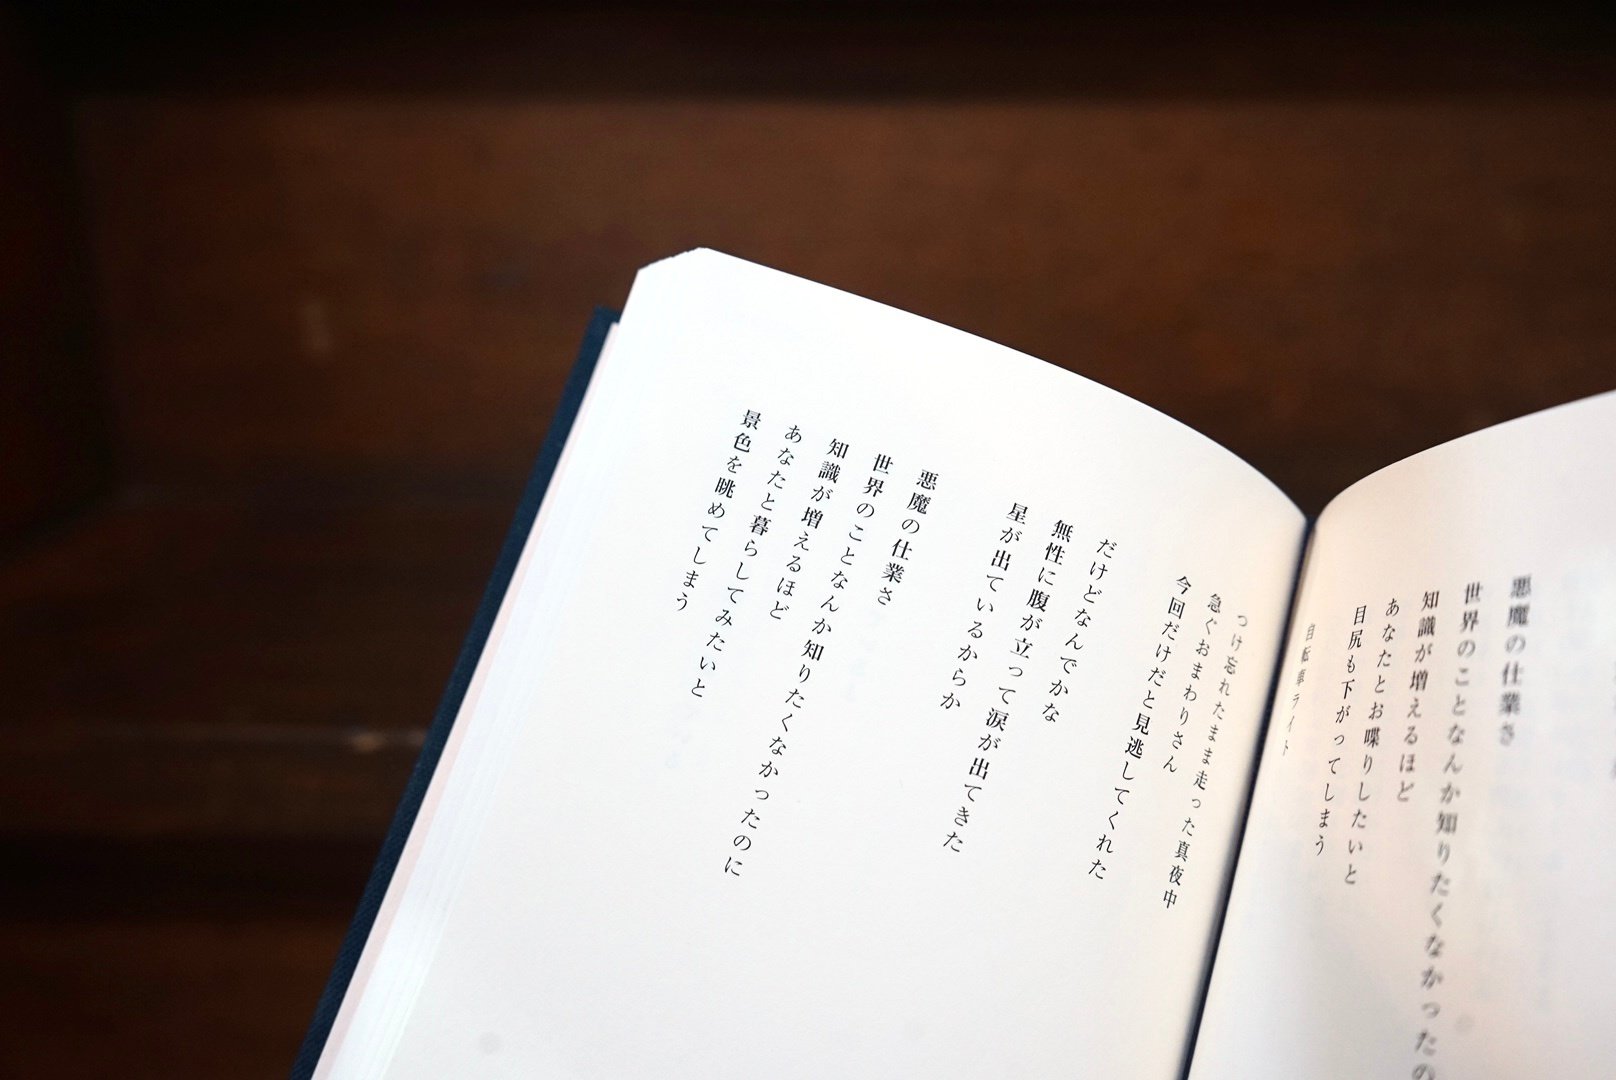 悪魔の仕業さ
世界のことなんか知りたくなかったの
知識が増えるほど
あなたとお喋りしたいと
目尻も下がってしまう
自転車ライト
つけ忘れたまま走った真夜中
急ぐおまわりさん
今回だけだと見逃してくれた
だけどなんでかな
無性に腹が立って涙が出てきた
星が出ているからか
悪魔の仕業さ
世界のことなんか知りたくなかったのに
知識が増えるほど
あなたと暮らしてみたいと
景色を眺めてしまう